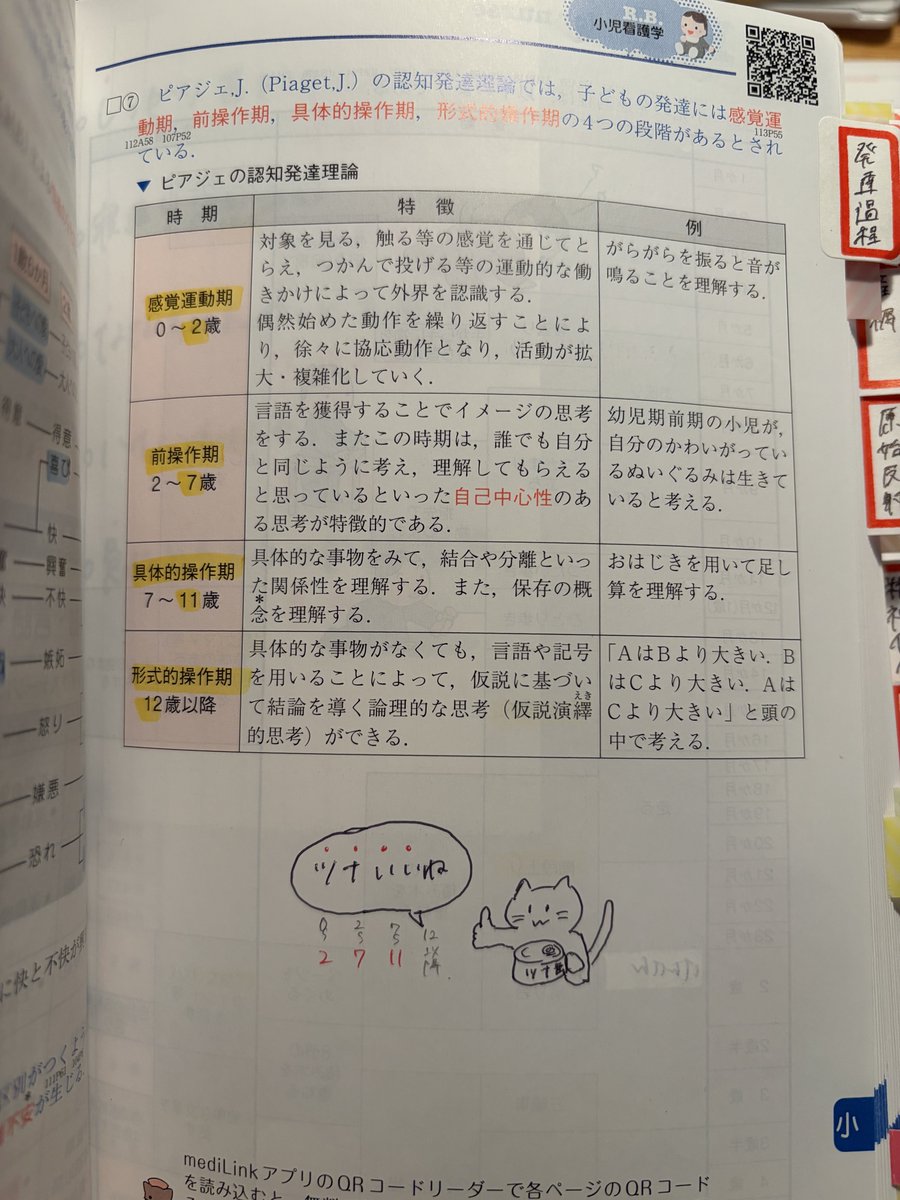 R.B.
小児看護学
□⑦ ピアジェ,J.（Piaget,J.）の認知発達理論では，子どもの発達には感覚運
動期，前操作期，具体的操作期，形式的操作期の4つの段階があるとされ
112A58 107P52
113P55
ている．
▼ ピアジェの認知発達理論
時 期 特 徴 例
感覚運動期
0～2歳
対象を見る，触る等の感覚を通じてと
らえ，つかんで投げる等の運動的な働
きかけによって外界を認識する．
偶然始めた動作を繰り返すことによ
り，徐々に協応動作となり，活動が拡
大・複雑化していく．
がらがらを振ると音が
鳴ることを理解する．
前操作期
2～7歳
言語を獲得することでイメージの思考
をする．またこの時期は，誰でも自分
と同じように考え，理解してもらえる
と思っているといった自己中心性のあ
る思考が特徴的である．
幼児期前期の小児が，
自分のかわいがってい
るぬいぐるみは生きて
いると考える．
具体的操作期
7～11歳
具体的な事物をみて，結合や分離といっ
た関係性を理解する．また，保存の概
念*を理解する．
おはじきを用いて足し
算を理解する．
形式的操作期
12歳以降
具体的な事物がなくても，言語や記号
を用いることによって，仮説に基づい
て結論を導く論理的な思考（仮説演繹
えき
的思考）ができる．
「AはBより大きい．B
はCより大きい．Aは
Cより大きい」と頭の
中で考える．
ツナいいね
0 2 7 12
〜 〜 〜 以
2 7 11 降
ツナ缶
mediLinkアプリのQRコードリーダーで各ページのQRコード
を読み込むと，無料
小
発達過程
原始反射
1歳6か月
得意
得意
喜び
快
興奮
不快
嫉妬
怒り
嫌悪
恐れ
に快と不快が
別がつくよう
が生じる．